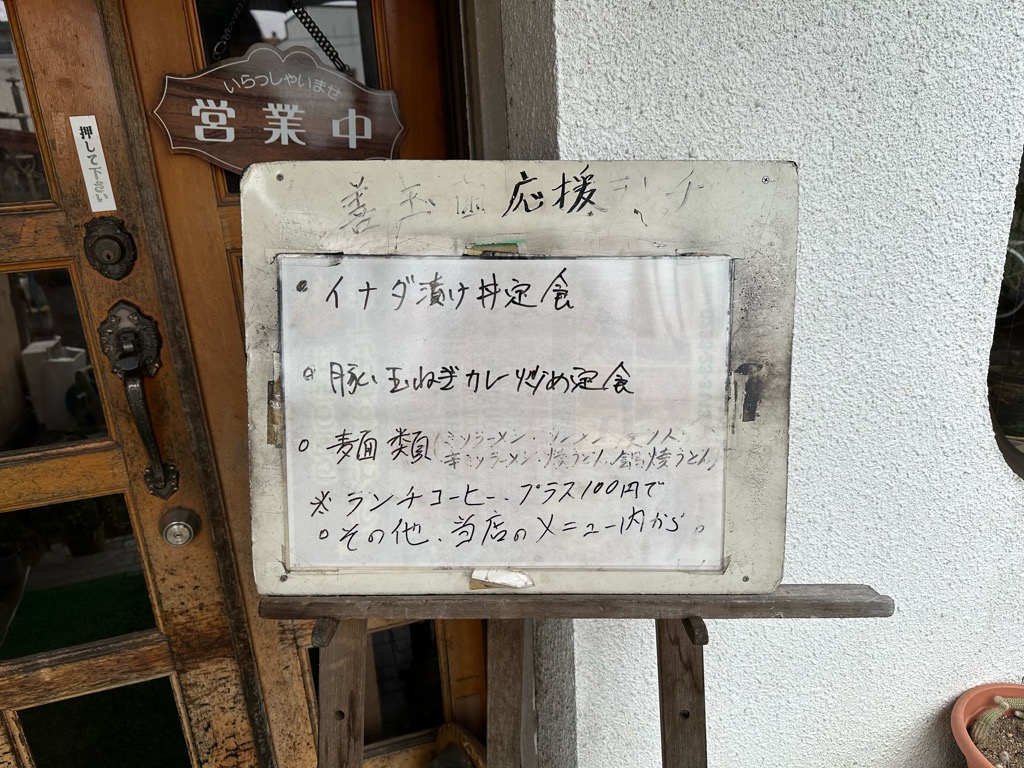 いらっしゃいませ
営業中
押して下さい
応援
・イナダ漬け丼定食
・豚、玉ねぎカレー炒め定食
○麺類(ミソラーメン・
辛ミソラーメン・焼うどん、鍋焼うどん)
※ランチコーヒー、プラス100円で
○その他、当店のメニュー内から。